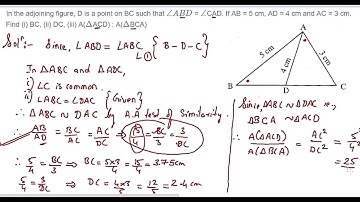 In the adjoining figure, D is a point on BC such that ∠ABD = ∠CAD. If AB = 5 cm, AD = 4 cm and AC = 3 cm.
Find (i) BC, (ii) DC, (iii) A(△ACD) : A(△BCA)
Solⁿ:- Since, ∠ABD = ∠ABC { B-D-C }
L(1)
In △ABC and △ADC,
i) ∠C is common.
ii) ∠ABC = ∠DAC { Given }
∴ △ABC ~ △DAC by A.A test of Similarity.
∴ AB/AD = BC/AC = AC/DC ⇒ 5/4 = BC/3 = 3/DC
∴ 5/4 = BC/3 ⇒ BC = 5×3/4 = 15/4 = 3.75cm
5/4 = 3/DC ⇒ DC = 4×3/5 = 12/5 = 2.4cm
A
5 cm
4 cm
3 cm
B
D
C
Since, △ABC ~ △DAC
△BCA ~ △ACD
∴ A(△ACD)/A(△BCA) = AC²/DC² = 5²/4²
= 25/